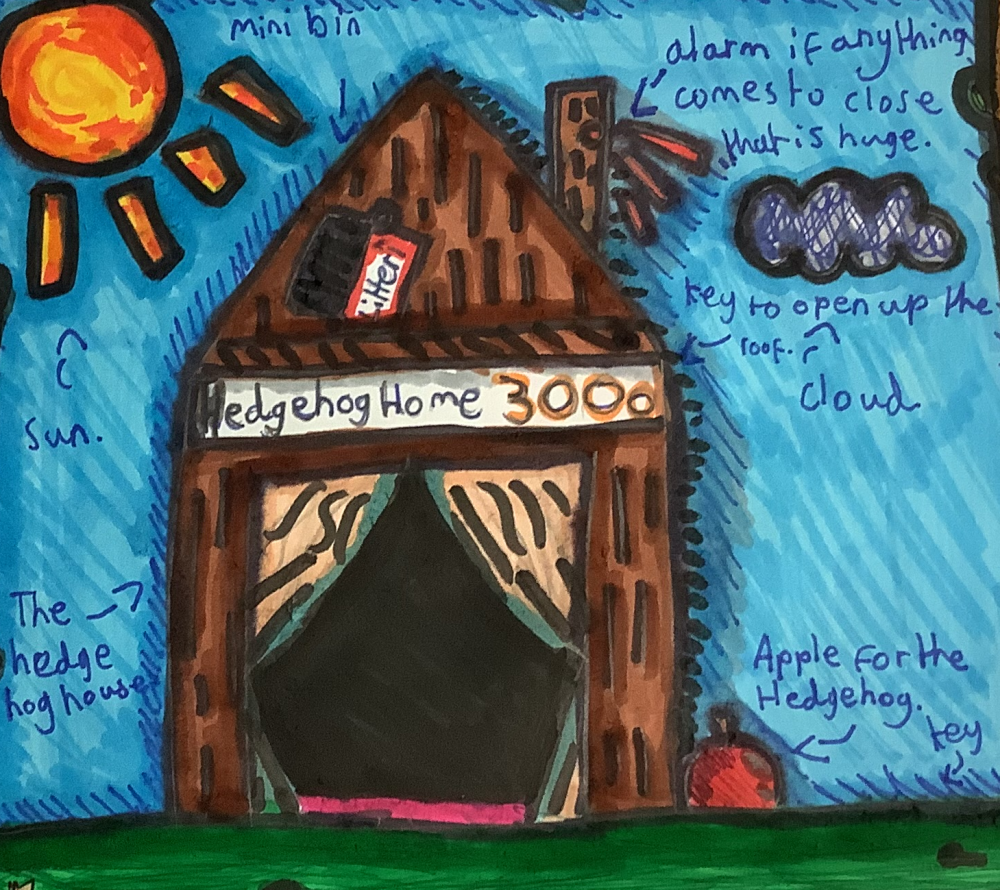 mini bin
alarm if anything
comes to close
that is huge.
litter
key to open up the
roof.
Cloud.
Hedgehog Home 3000
Sun.
The
hedge
hog house
Apple for the
Hedgehog.
key